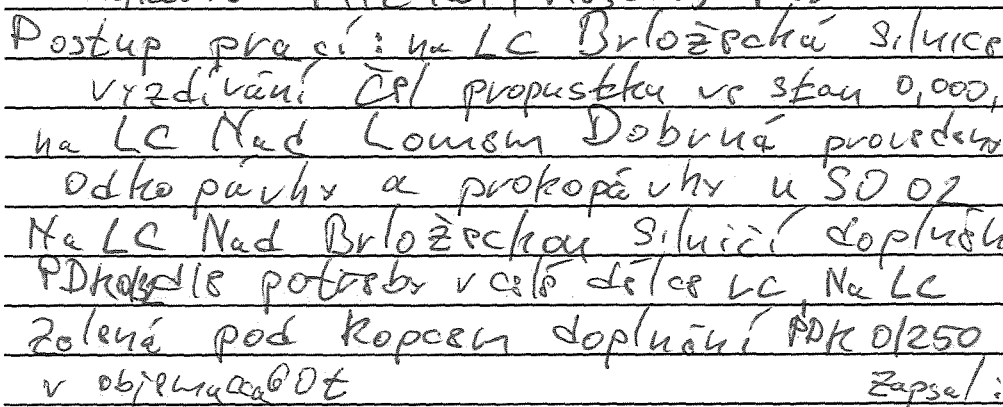 Postup prací: na LC Brložecká silnice
vyzdívání čel propustku ve stan 0,000,
na LC Nad Lomem Dobrná provedeno
odkopávky a prokopávky u SO 02
Na LC Nad Brložeckou silničí doplněk
PDK podle potřeby v celé délce LC, Na LC
Zelená pod kopcem doplnění PDK 0/250
v objemu cca 60t Zapsal: